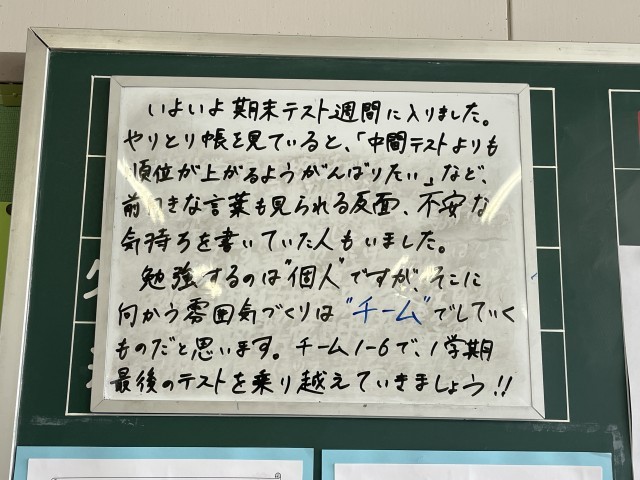 いよいよ期末テスト週間に入りました。
やりとり帳を見ていると、「中間テストよりも
順位が上がるようがんばりたい」など、
前向きな言葉も見られる反面、不安な
気持ちを書いていた人もいました。
勉強するのは"個人"ですが、そこに
向かう雰囲気づくりは"チーム"でしていく
ものだと思います。チーム1-6で、1学期
最後のテストを乗り越えていきましょう!!